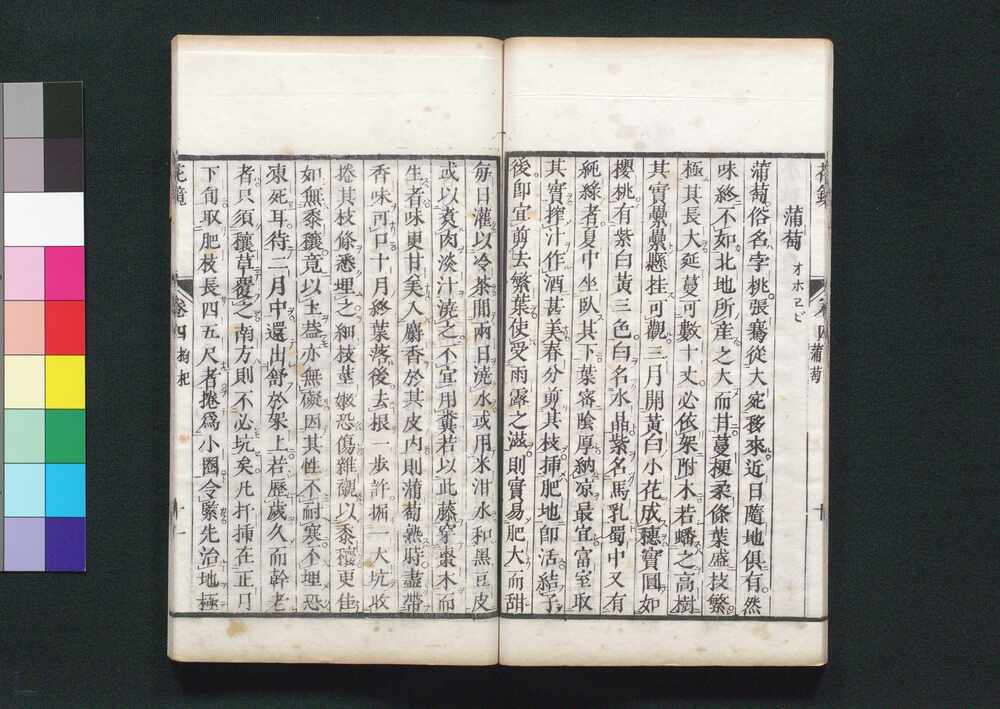 花鏡 卷四 蒲萄 十
蒲萄 オホヱビ
蒲萄俗名字桃張騫從大宛移來近日隨地俱有然
味終不如北地所産之大而甘蔓梗柔條葉盛技繁
極其長大延蔓可數十丈必依架附木若蟠之高樹
其實纍纍懸挂可觀三月開黃白小花成穗實圓如
櫻桃有紫白黃三色白名水晶紫名馬乳蜀中又有
純綠者夏中坐臥其下葉密陰厚納凉最宜富室取
其實搾汁作酒甚美春分剪其枝揷肥地卽活結子
後卽宜剪去繁葉使受雨露之滋則實易肥大而甜
每日灌以冷茶間兩日澆水或用米泔水和黑豆皮
或以煑肉淡汁澆之不宜用糞若以此藤穿棗木而
生者味更甘矣入麝香於其皮内則蒲萄熟時盡帶
香味可口十月終葉落後去根一步許掘一大坑收
捲其枝條悉埋之細技莖嫩恐傷雜襯以黍穰更佳
如無黍穰竟以土葢亦無礙因其性不耐寒不埋恐
凍死耳待二月中還出舒於架上若歷歲久而幹老
者只須穰草覆之南方則不必坑矣凡扦揷在正月
下旬取肥枝長四五尺者捲爲小圈令緊先治地極
花鏡 卷四 枸杞 十一